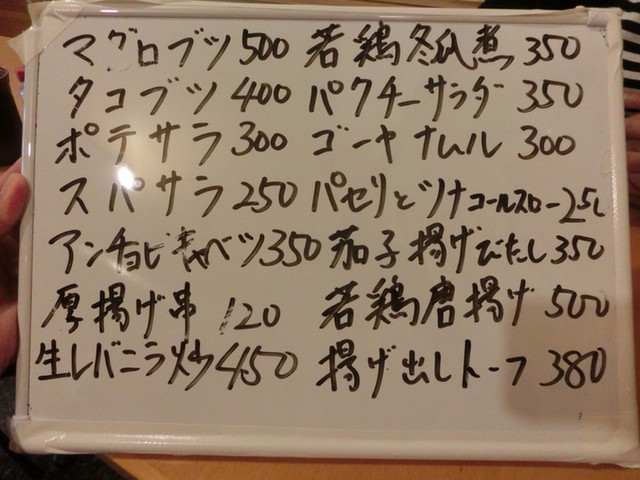 マグロブツ 500 若鶏冬瓜煮 350
タコブツ 400 パクチーサラダー 350
ポテサラ 300 ゴーヤナムル 300
スパサラ 250 パセリとツナコールスロー 250
アンチョビキャベツ 350 茄子揚げびたし 350
厚揚げ串 120 若鶏唐揚げ 500
生レバニラ炒 450 揚げ出しトーフ 380